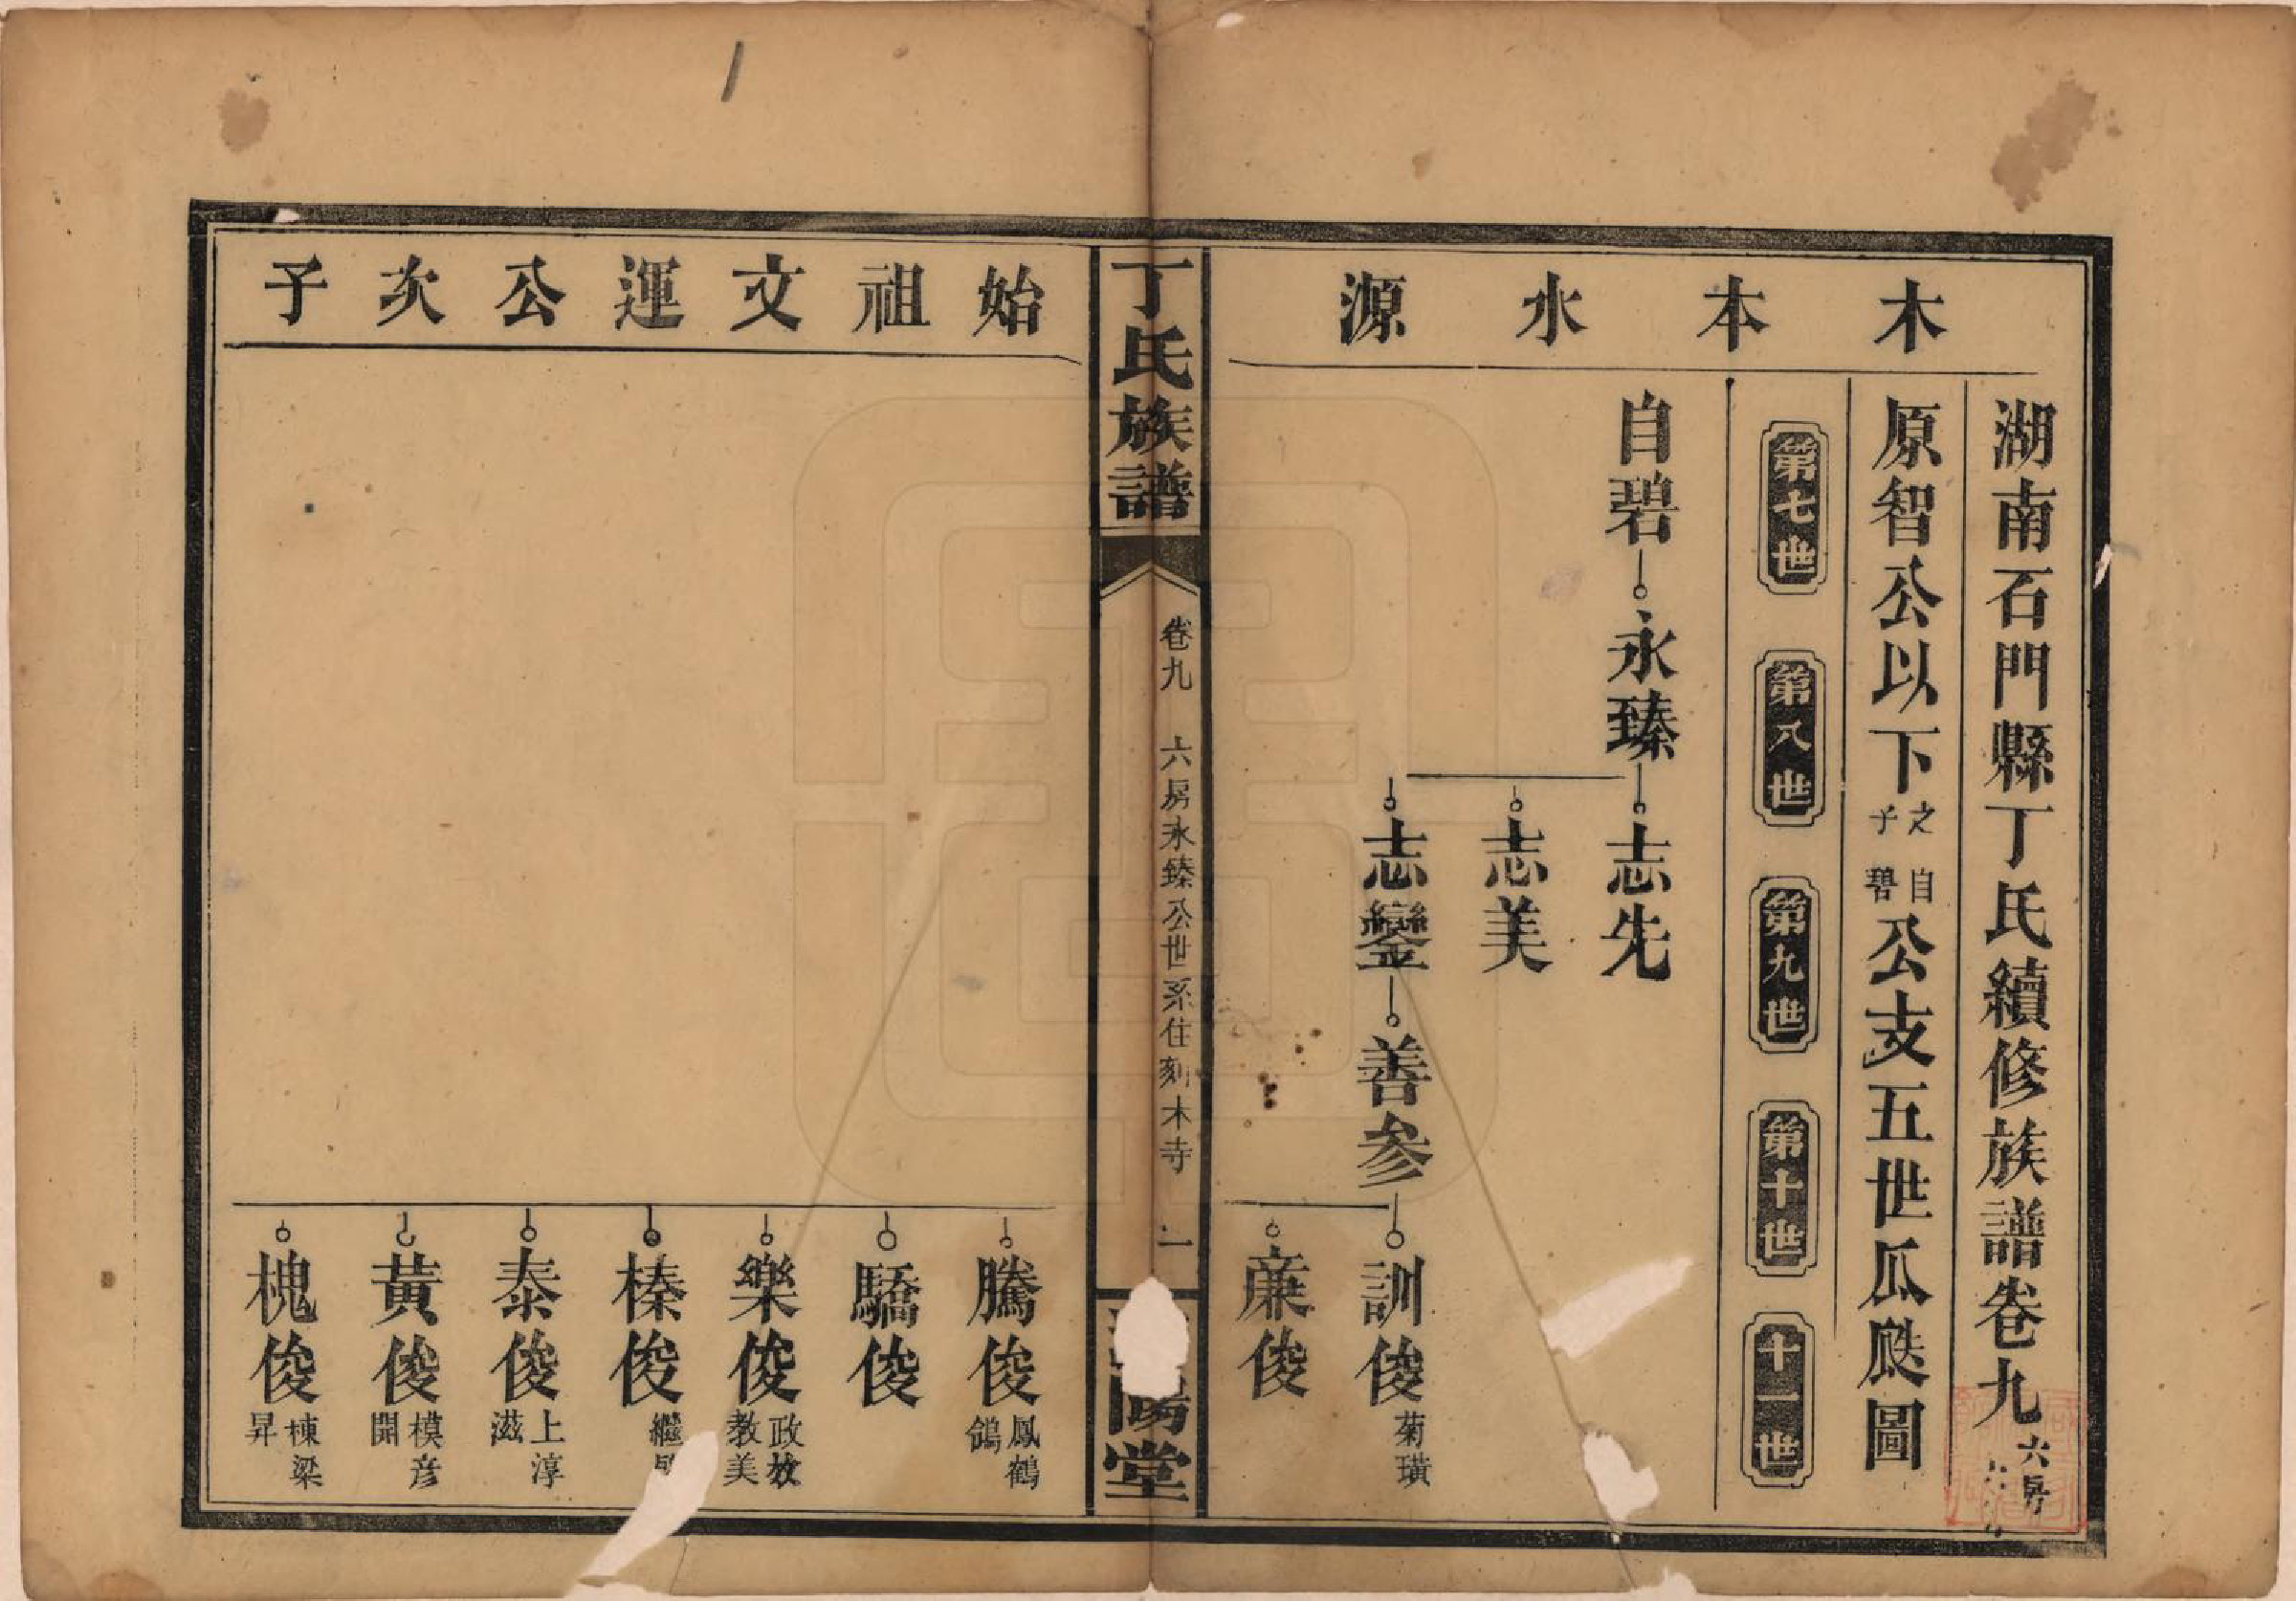 木本水源
湖南石門縣丁氏續修族譜卷九 六房
原智公以下之子自碧公支五世瓜瓞圖
第七世
第八世
第九世
第十世
十一世
自碧
永臻
志先
志美
志鑾
善參
訓俊 菊璜
廉俊
丁氏族譜
卷九 六房永臻公世系住刻木寺 一
陽堂
始祖文運公次子
騰俊 鳳鶴 鴿
驕俊
樂俊 政敘 教美
榛俊 繼
泰俊 上淳 滋
黃俊 模彦 開
槐俊 棟梁 昇